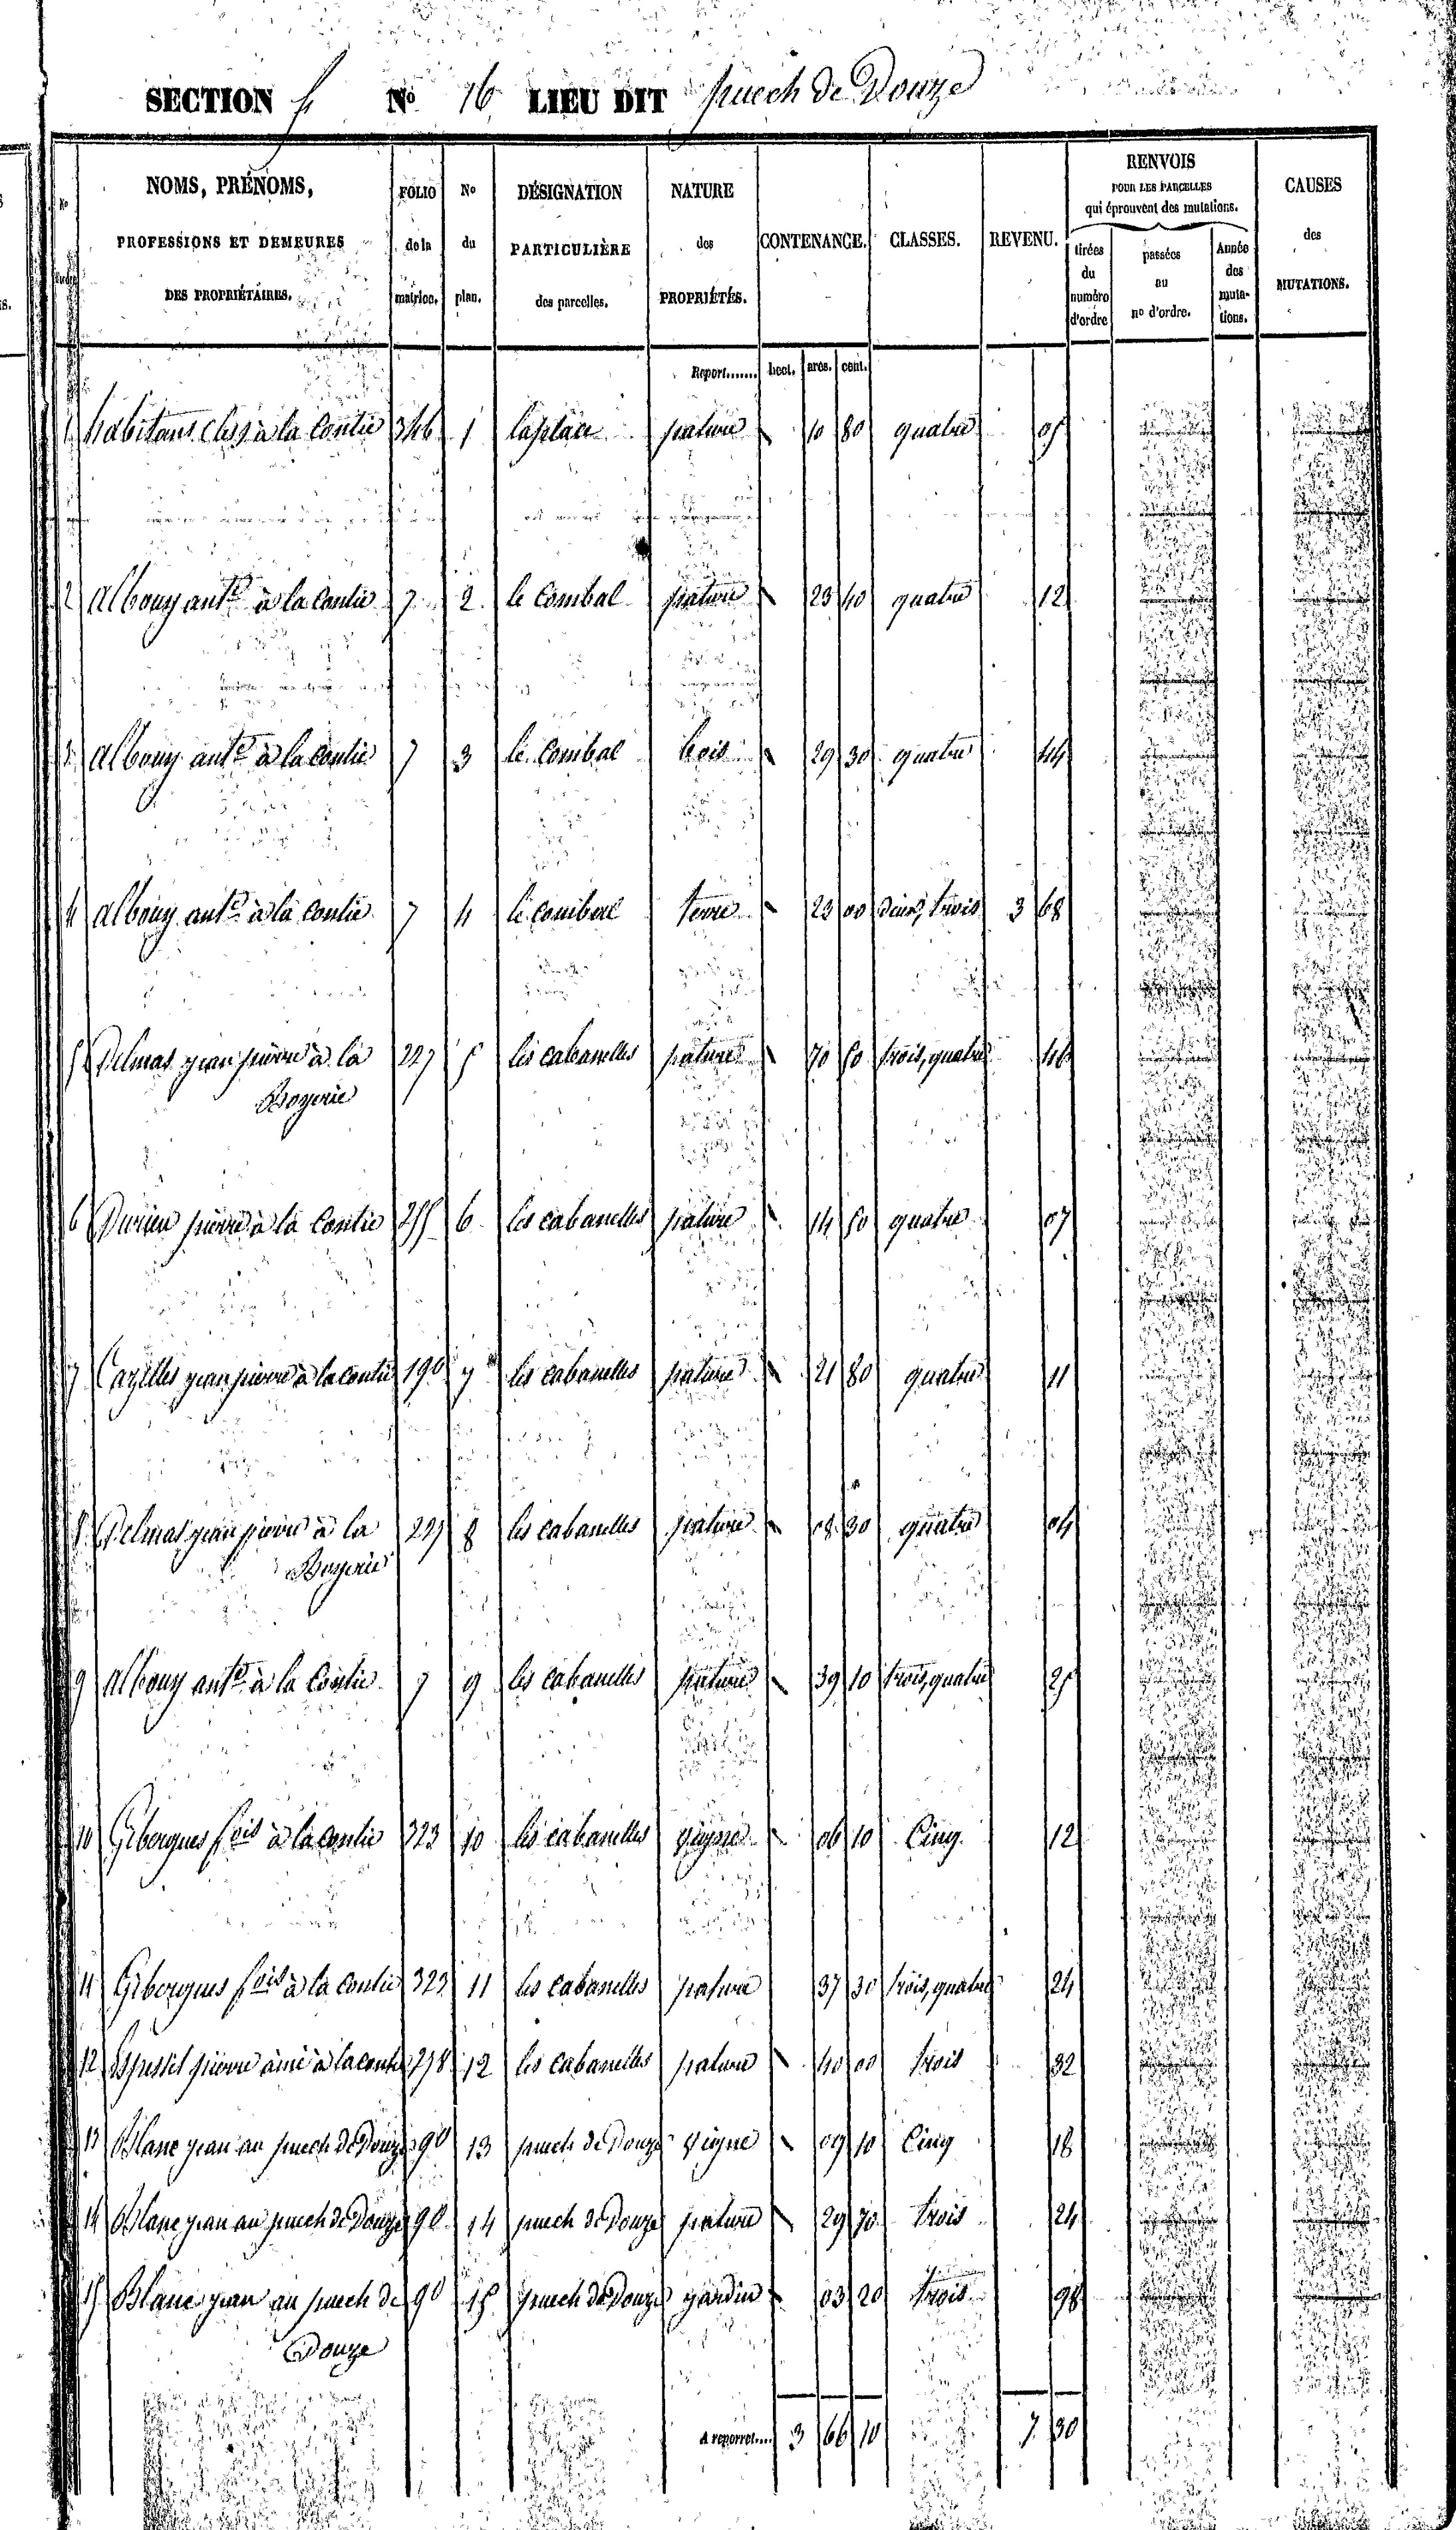 SECTION f No 16 LIEU DIT puech de Douze
No d'ordre
NOMS, PRÉNOMS,
PROFESSIONS ET DEMEURES
DES PROPRIÉTAIRES.
FOLIO
de la
matrice.
No
du
plan.
DÉSIGNATION
PARTICULIÈRE
des parcelles.
NATURE
des
PROPRIÉTÉS.
CONTENANCE.
CLASSES.
REVENU.
RENVOIS
POUR LES PARCELLES
qui éprouvent des mutations.
tirées
du
numéro
d'ordre
passées
au
no d'ordre.
Année
des
muta-
tions.
CAUSES
des
MUTATIONS.
Report....... hect. ares. cent.
1 habitans (les) à la Contie 346 1 laplace pature 10 80 quatre 05
2 albouy ant.e à la Contie 7 2 le Combal pature 23 40 quatre 12
3 albouy ant.e à la contie 7 3 le Combal bois 29 30 quatre 44
4 albouy ant.e à la contie 7 4 le combal terre 23 00 deux, trois 3 68
5 Delmas jean pierre à la 227 5 les cabanelles pature 70 50 trois, quatre 46
Boyerie
6 Durieu pierre à la Contie 255 6 les cabanelles pature 14 50 quatre 07
7 Cazelles jean pierre à la contie 190 7 les cabanelles pature 21 80 quatre 11
8 Delmas jean pierre à la 227 8 les cabanelles pature 08 30 quatre 04
Boyerie
9 albouy ant.e à la Contie 7 9 les cabanelles pature 39 10 trois, quatre 25
10 Gibergues fois à la contie 323 10 les cabanelles vigne 06 10 Cinq 12
11 Gibergues fois à la contie 323 11 les cabanelles pature 37 30 trois, quatre 24
12 pierre ainé à la contie 278 12 les cabanelles pature 40 00 trois 32
13 Blanc jean au puech de Douze 90 13 puech de Douze Vigne 09 10 Cinq 18
14 Blanc jean au puech de Douze 90 14 puech de Douze pature 29 70 trois 24
15 Blanc jean au puech de 90 15 puech de Douze jardin 03 20 trois 98
Douze
A reporter.... 3 66 10 7 30